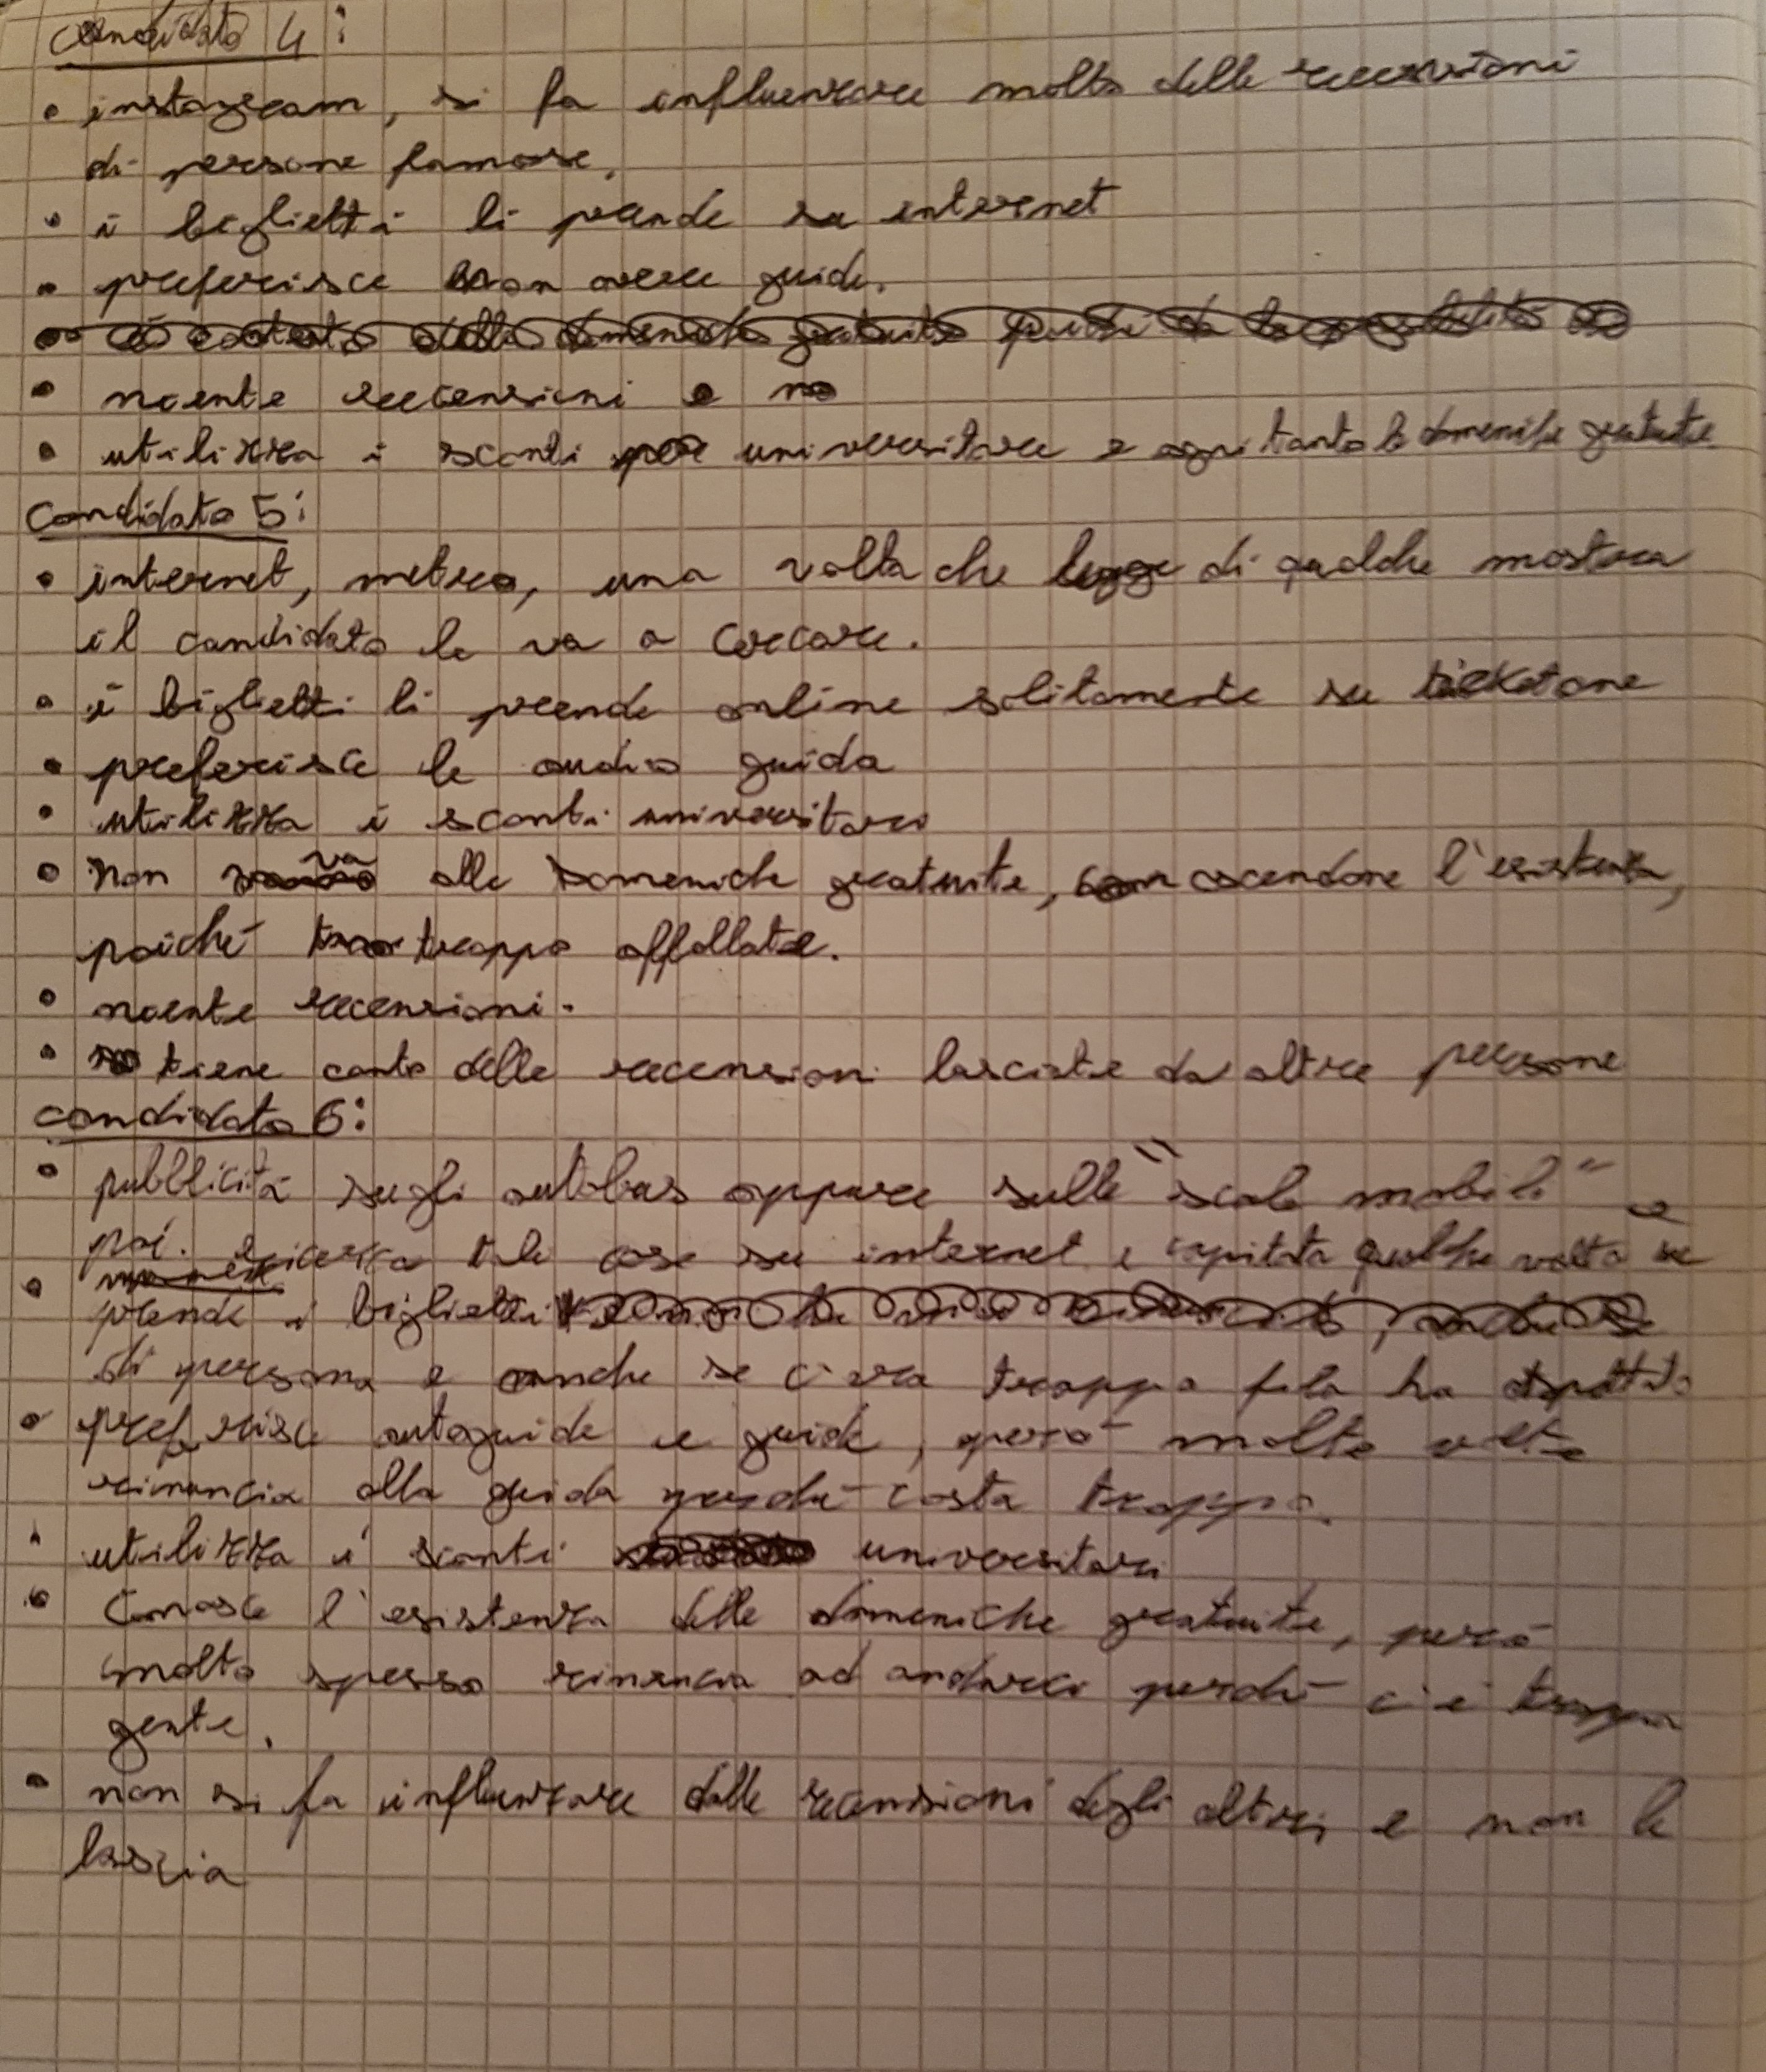 candidato 4:
• instagram, si fa influenzare molto delle recensioni
di persone famose.
• i biglietti li prende su internet
• preferisce non avere guide.
• niente recensioni
• utilizza i sconti universitare e ogni tanto le domeniche gratuite
candidato 5:
• internet, metro, una volta che legge di qualche mostra
il candidato le va a cercare.
• i biglietti li prende online solitamente su ticketone
• preferisce le audio guida
• utilizza i sconti universitari
• non va alle domeniche gratuite, conoscendone l'esistenza,
poiché troppo affollate.
• niente recensioni.
• tiene conto delle recensioni lasciate da altre persone
candidato 6:
• pubblicità sugli autobus oppure sulle "scale mobili" e
poi ricerca tale cose su internet e capitata qualche volta se
• prende i biglietti
di persona e anche se c'era troppa fila ha aspettato
• preferisce autoguide e guide, però molte volte
rinuncia alla guida perché costa troppo.
• utilizza i sconti universitari
• Conosce l'esistenza delle domeniche gratuite, però
molto spesso rinuncia ad andarci perché c'è troppa
gente.
• non si fa influenzare dalle recensioni degli altri e non le
lascia